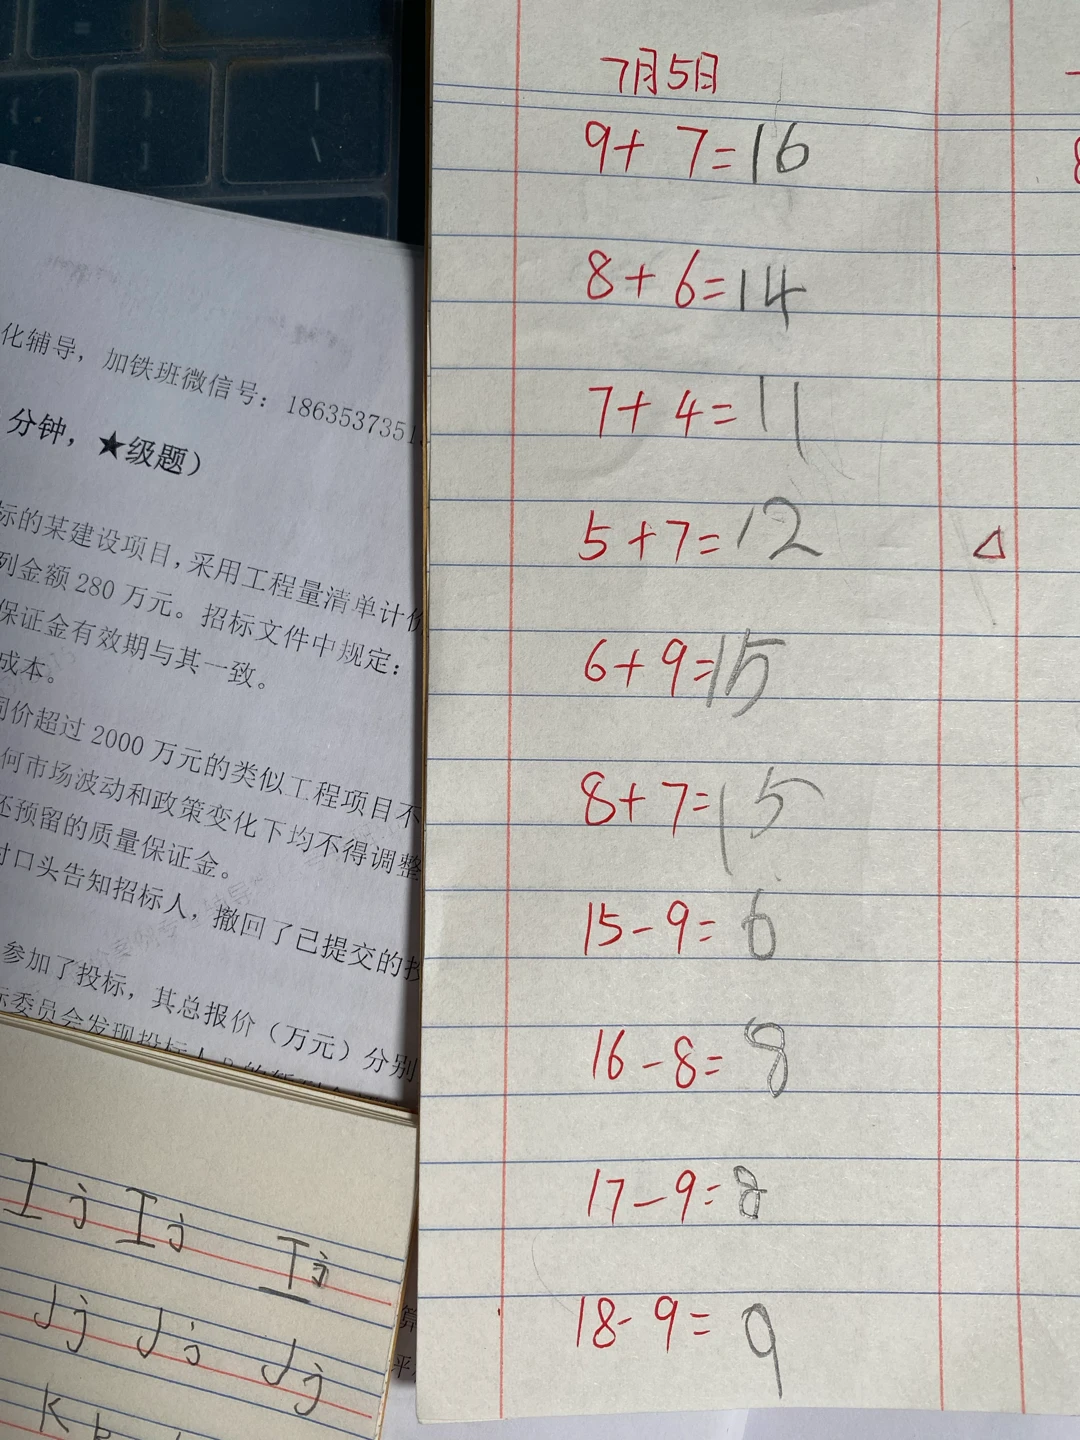 7月5日
9+7=16
8+6=14
7+4=11
5+7=12
6+9=15
8+7=15
15-9=6
16-8=8
17-9=8
18-9=9
化辅导，加铁班微信号：1863537351
分钟，★级题）
标的某建设项目，采用工程量清单计价
列金额280万元。招标文件中规定：
保证金有效期与其一致。
成本。
同价超过2000万元的类似工程项目不
何市场波动和政策变化下均不得调整
还预留的质量保证金。
口头告知招标人，撤回了已提交的投
参加了投标，其总报价（万元）分别
标委员会发现投标人
I j I j I j
J j J j J j
K k